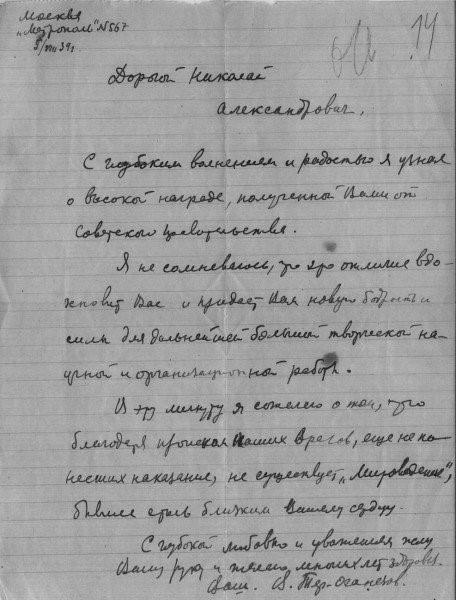 Москва
„Метрополь" N567
5/VIII 39 г.
14
Дорогой Николай
Александрович,
С глубоким волнением и радостью я узнал
о высокой награде, полученной Вами от
Советского Правительства.
Я не сомневаюсь, что это отличие вдо-
хновит Вас и придаст Вам новую бодрость и
силы для дальнейшей большой творческой на-
учной и организационной работы.
В эту минуту я сожалею о том, что
благодаря проискам наших врагов, еще не по-
несших наказание, не существует „Мироведение",
бывшее столь близким Вашему сердцу.
С глубокой любовью и уважением жму
Вашу руку и желаю многих лет здоровья.
Ваш В. Тер-Оганезов.